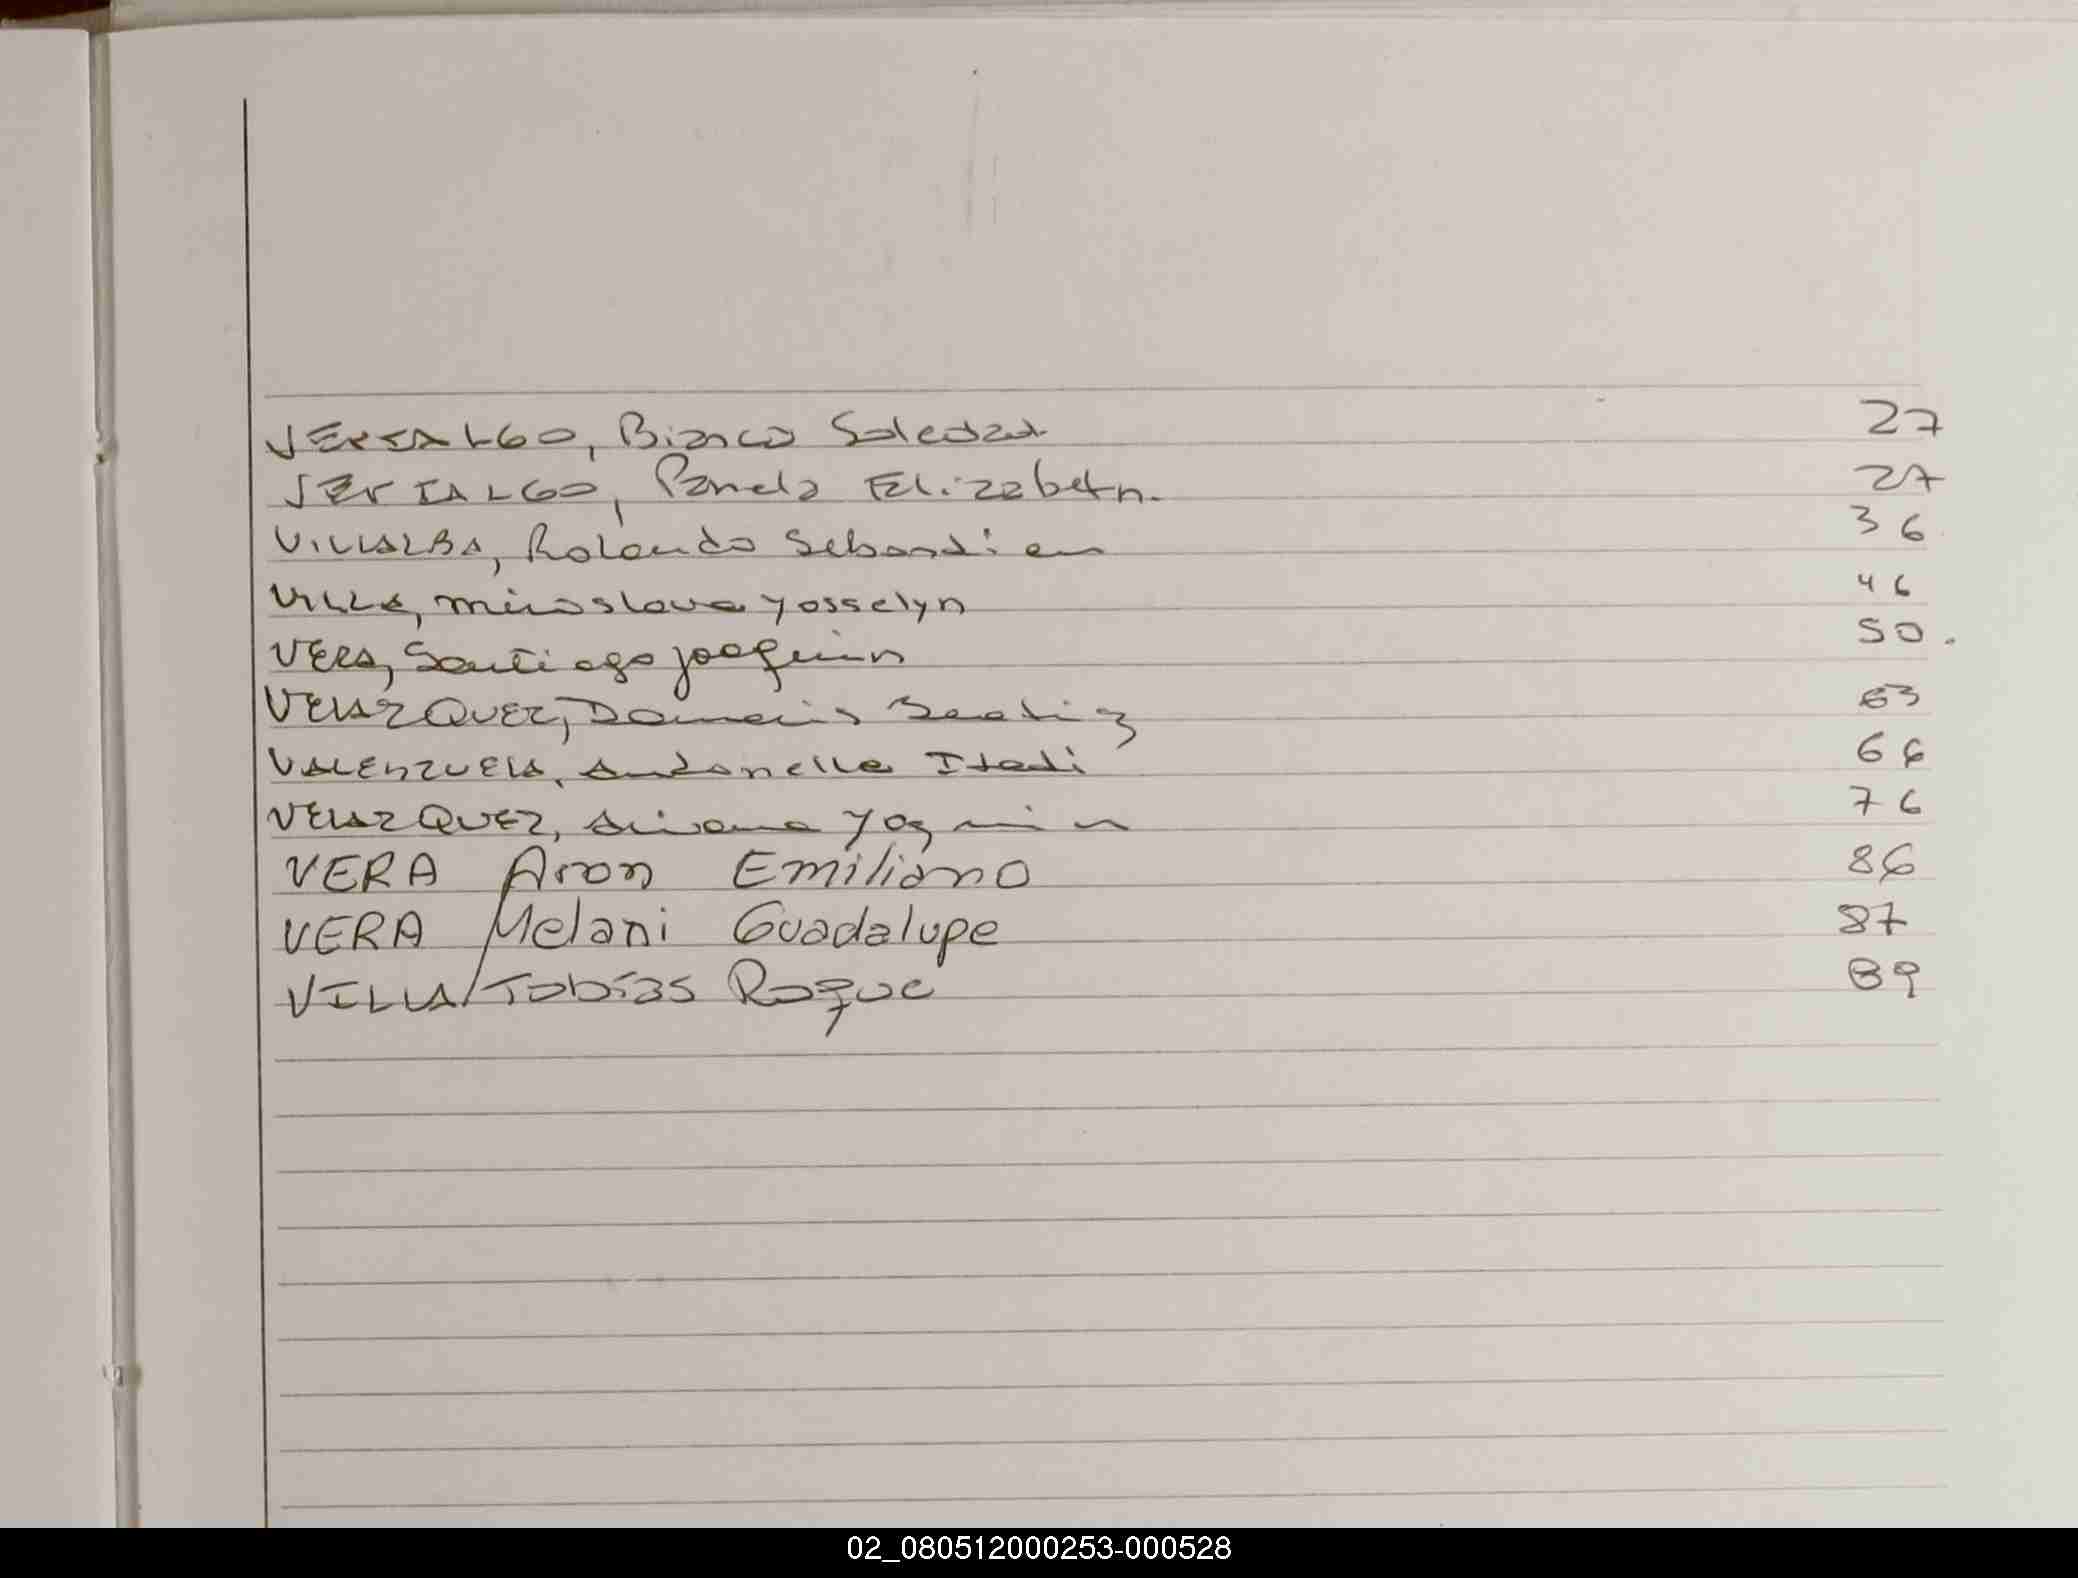 VERSALGO, Bianca Soledad 27
VERSALGO, Pamela Elizabeth. 27
VILLALBA, Rolando Sebastian 36
VILLA, Miroslava yosselyn 46
VERA, Santiago joaquin 50.
VELAZQUEZ, Damaris Beatriz 63
VALENZUELA, Antonella Itati 66
VELAZQUEZ, Ariana Yazmin 76
VERA Aron Emiliano 86
VERA Melani Guadalupe 87
VILLA Tobías Roque 89
02_080512000253-000528